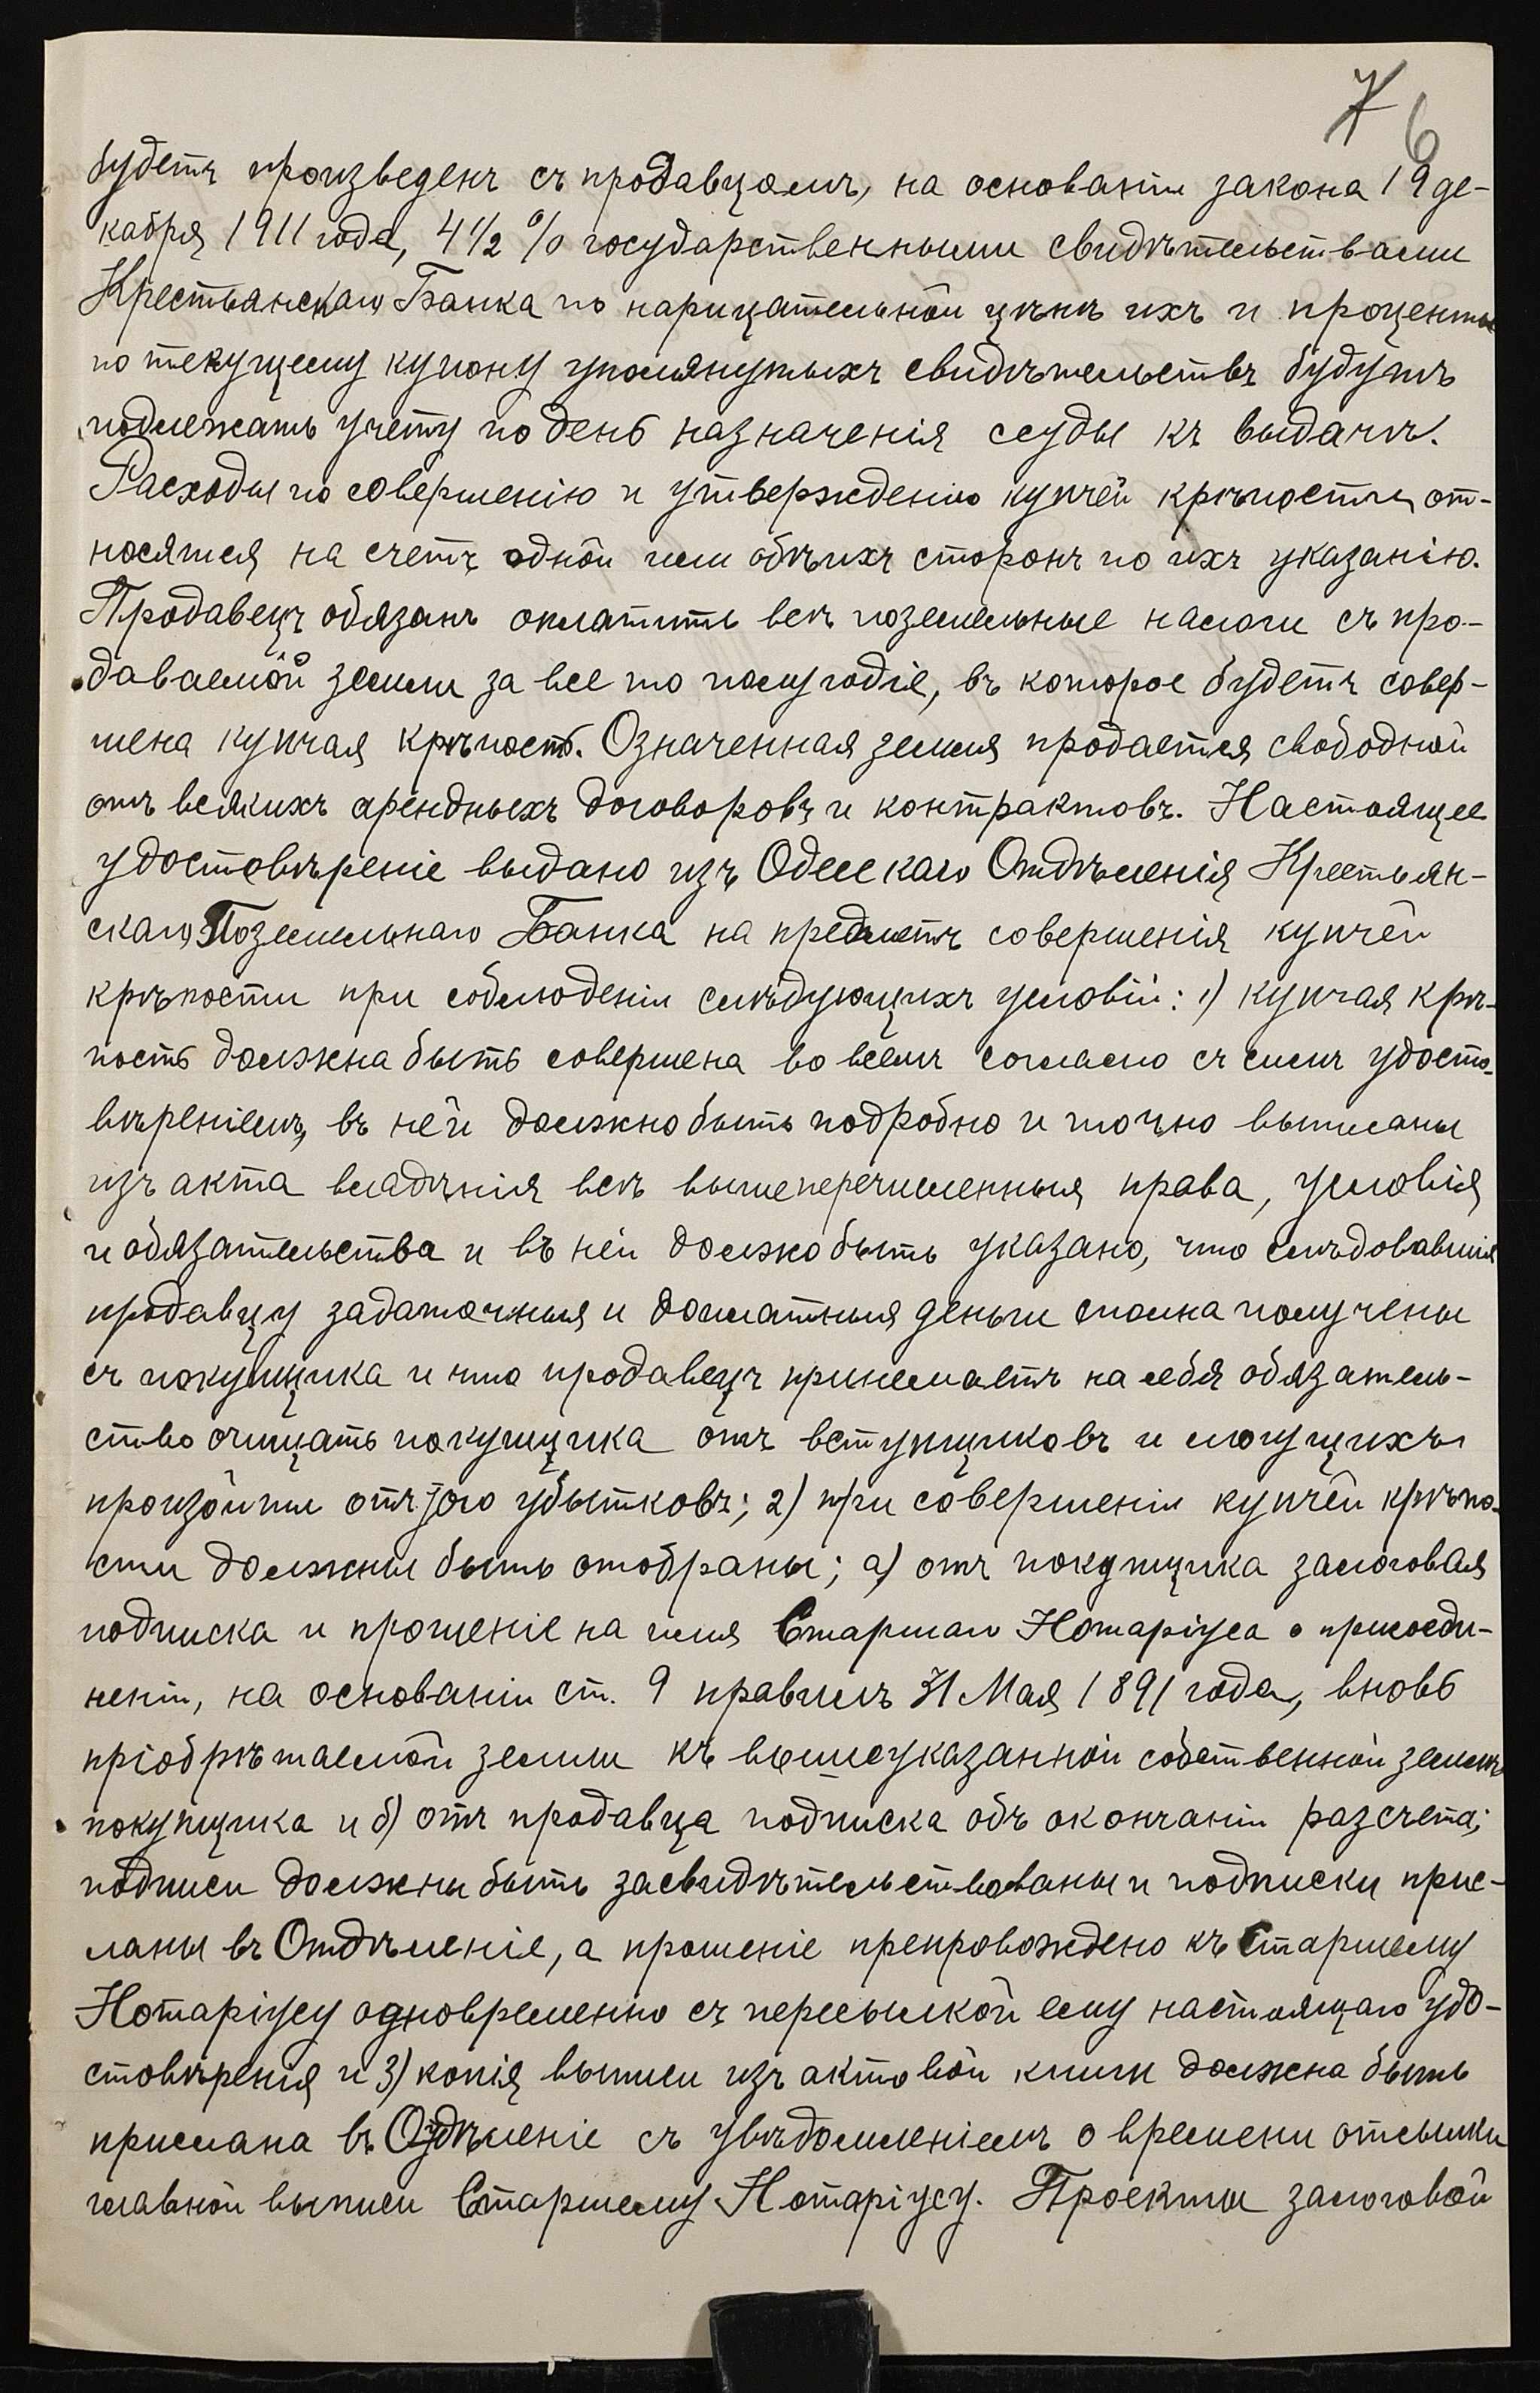 7 6
будетъ произведенъ съ продавцомъ, на основаніи закона 19 де-
кабря 1911 года, 4 1/2 % государственными свидѣтельствами
Крестьянскаго Банка по нарицательной цѣнѣ ихъ и проценты
по текущему купону упомянутыхъ свидѣтельствъ будутъ
подлежать учету по день назначенія ссуды къ выдачѣ.
Расходы по совершенію и утвержденію купчей крѣпости от-
носятся на счетъ одной или обѣихъ сторонъ по ихъ указанію.
Продавецъ обязанъ оплатить всѣ поземельные налоги съ про-
даваемой земли за все то полугодіе, въ которое будетъ совер-
шена купчая крѣпость. Означенная земля продается свободной
отъ всякихъ арендныхъ договоровъ и контрактовъ. Настоящее
удостовѣреніе выдано изъ Одесскаго Отдѣленія Крестьян-
скаго Поземельнаго Банка на предметъ совершенія купчей
крѣпости при соблюденіи слѣдующихъ условій: 1) купчая крѣ-
пость должна быть совершена во всемъ согласно съ симъ удосто-
вѣреніемъ, въ ней должно быть подробно и точно выписаны
изъ акта владѣнія всѣ вышеперечисленныя права, условія
и обязательства и въ ней должно быть указано, что слѣдовавшія
продавцу задаточныя и доплатныя деньги сполна получены
съ покупщика и что продавецъ принимаетъ на себя обязатель-
ство очищать покупщика отъ вступщиковъ и могущихъ
произойти отъ того убытковъ; 2) при совершеніи купчей крѣпо-
сти должны быть отобраны; а) отъ покупщика залоговая
подписка и прошеніе на имя Старшаго Нотаріуса о присоеди-
неніи, на основаніи ст. 9 правилъ 31 Мая 1891 года, вновь
пріобрѣтаемой земли къ вышеуказанной собственной землѣ
покупщика и б) отъ продавца подписка объ окончаніи разсчета;
подписи должны быть засвидѣтельствованы и подписки прис-
ланы въ Отдѣленіе, а прошеніе препровождено къ Старшему
Нотаріусу одновременно съ пересылкой ему настоящаго удо-
стовѣренія и 3) копія выписи изъ актовой книги должна быть
прислана въ Отдѣленіе съ увѣдомленіемъ о времени отсылки
главной выписи Старшему Нотаріусу. Проекты залоговой